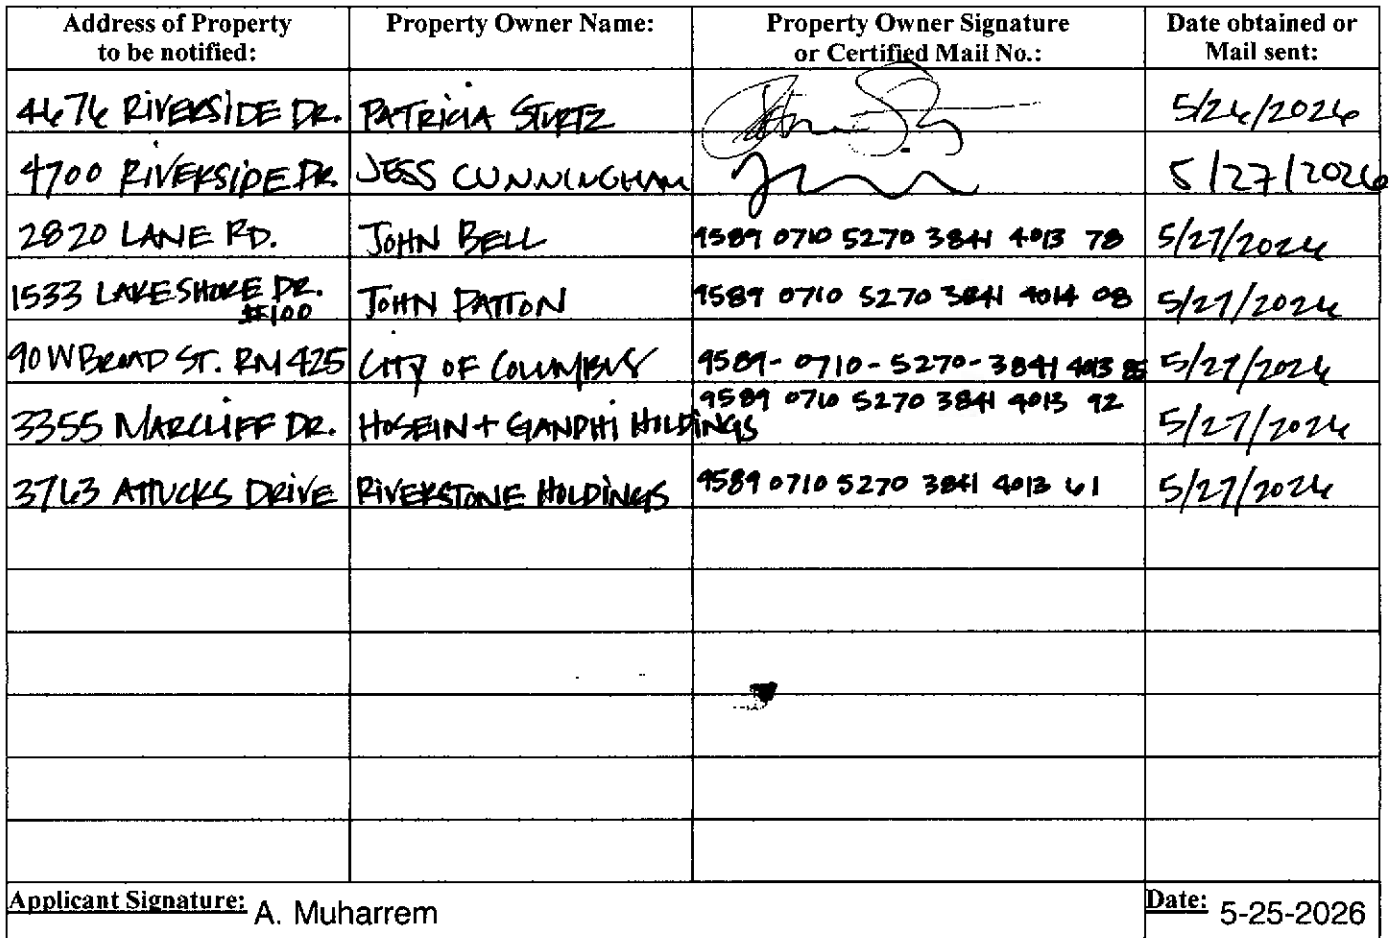 Address of Property to be notified: Property Owner Name: Property Owner Signature or Certified Mail No.: Date obtained or Mail sent:
4676 RIVERSIDE DR. PATRICIA STURTZ 5/26/2026
4700 RIVERSIDE DR. JESS CUNNINGHAM 5/27/2026
2820 LANE RD. JOHN BELL 9589 0710 5270 3841 4013 78 5/27/2026
1533 LAKESHORE DR. #100 JOHN PATTON 9589 0710 5270 3841 4014 08 5/27/2026
90 W BROAD ST. RM 425 CITY OF COLUMBUS 9589-0710-5270-3841 4013 85 5/27/2026
3355 MARCLIFF DR. HOSEIN + GANDHI HOLDINGS 9589 0710 5270 3841 4013 92 5/27/2026
3763 ATTUCKS DRIVE RIVERSTONE HOLDINGS 9589 0710 5270 3841 4013 61 5/27/2026
Applicant Signature: A. Muharrem Date: 5-25-2026